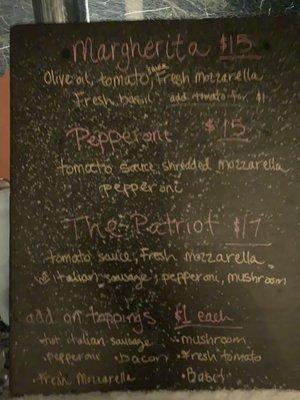 Margherita $15
Olive oil, tomato sauce, Fresh mozzarella
Fresh basil add tomato for $1
Pepperoni $15
tomato sauce, shredded mozzarella
pepperoni
The Patriot $17
tomato sauce, Fresh mozzarella
italian sausage, pepperoni, mushroom
add on toppings $1 each
hot italian sausage • mushroom
pepperoni • bacon • fresh tomato
• Fresh Mozzarella • Basil